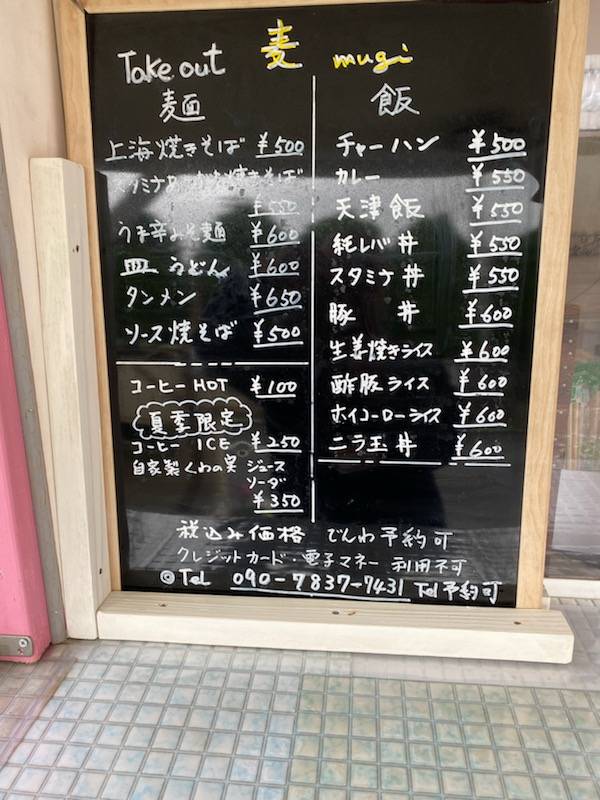 Take out 麦 mugi
麺
上海焼きそば ¥500
スタミナ 焼きそば
¥550
うま辛みそ麺 ¥600
皿うどん ¥600
タンメン ¥650
ソース焼そば ¥500
コーヒー HOT ¥100
夏季限定
コーヒー ICE ¥250
自家製くわの実 ジュース
ソーダ
¥350
飯
チャーハン ¥500
カレー ¥550
天津飯 ¥550
純レバ丼 ¥550
スタミナ丼 ¥550
豚 丼 ¥600
生姜焼きライス ¥600
酢豚ライス ¥600
ホイコーローライス ¥600
ニラ玉丼 ¥600
税込み価格 でんわ予約可
クレジットカード・電子マネー 利用不可
◎Tel 090-7837-7431 Tel予約可